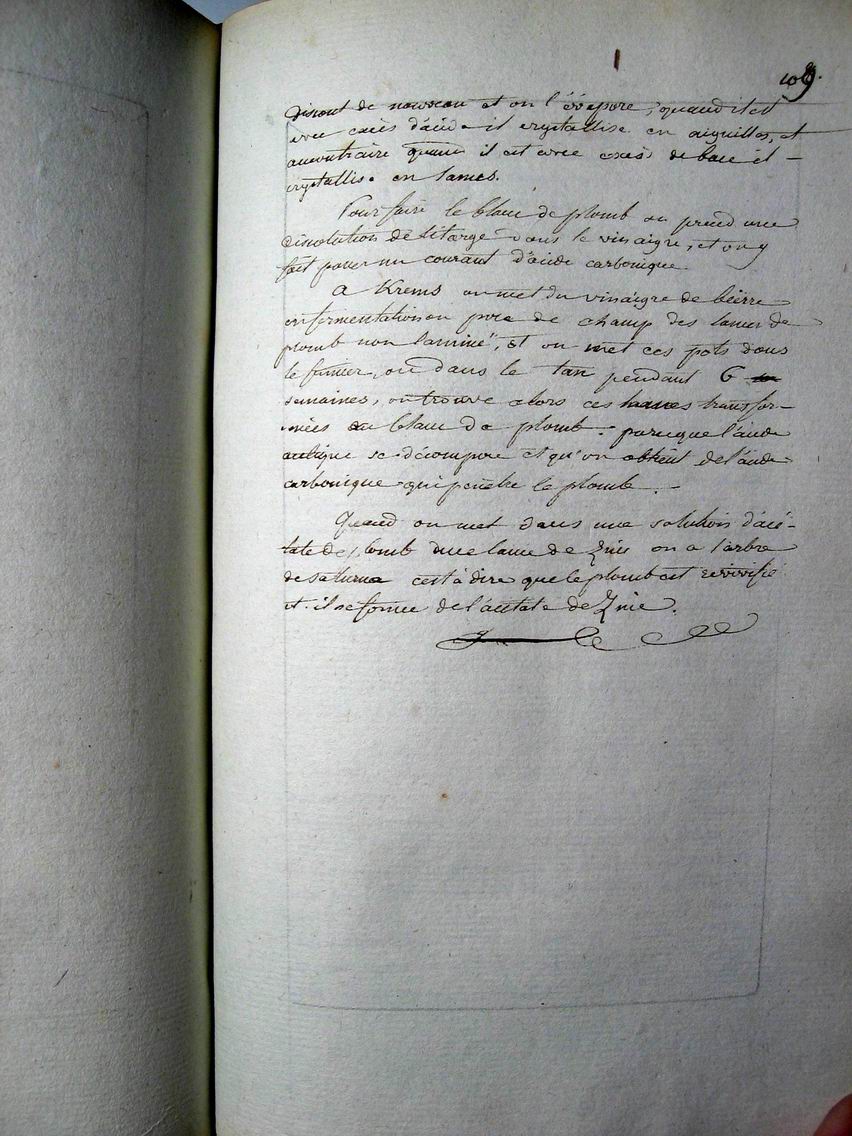 109.
disout de nouveau et on l'évapore, quand il est
avec excès d'acide il crystallise en aiguilles, et
au contraire quand il est avec excès de base il
crystallise en lames.
Pour faire le blanc de plomb on prend une
dissolution de litarge dans le vinaigre, et on y
fait passer un courant d'acide carbonique.
A Krems on met du vinaigre de bierre
en fermentation on pose de champ des lames de
plomb non laminé, et on met ces pots dans
le fumier, ou dans le tan pendant 6
semaines, on trouve alors ces lames transfor-
mées en blanc de plomb : parceque l'acide
acétique se décompose et qu'on obtient de l'acide
carbonique qui penètre le plomb.
Quand on met dans une solution d'acé-
tate de plomb une lame de Zinc on a l'arbre
de saturne c'est à dire que le plomb est revivifié
et il se forme de l'acétate de Zinc.